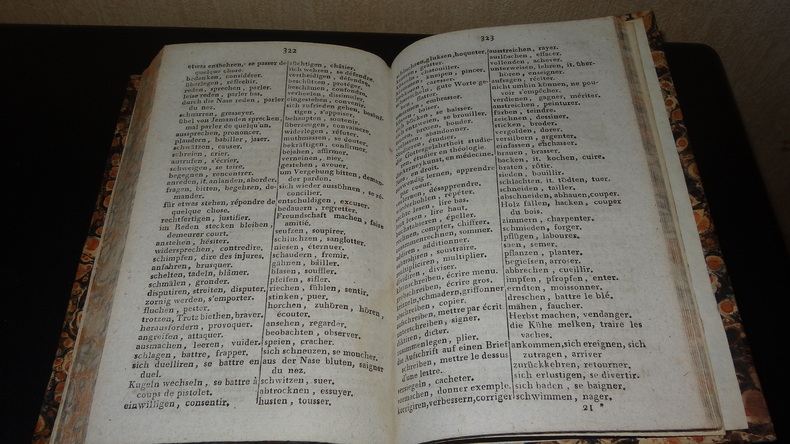 322
etwas entbehren, se passer de
quelque chose.
bedenken, considérer.
überlegen, réfléchir.
reden, sprechen, parler.
leise reden, parler bas.
durch die Nase reden, parler
du nez.
schnarren, grasseyer.
übel von Jemanden sprechen,
mal parler de quelqu'un.
aussprechen, prononcer.
plaudern, babiller, jaser.
schwätzen, causer.
schreien, crier.
ausrufen, s'écrier.
schweigen, se taire.
begegnen, rencontrer.
anreden, it. anlanden, aborder.
fragen, bitten, begehren, de-
mander.
für etwas stehen, répondre de
quelque chose.
rechtfertigen, justifier.
im Reden stecken bleiben,
demeurer court.
anstehen, hésiter.
widersprechen, contredire.
schimpfen, dire des injures.
anfahren, brusquer.
schelten, tadeln, blâmer.
schmälen, gronder.
disputiren, streiten, disputer.
zornig werden, s'emporter.
fluchen, pester.
trotzen, Trotz biethen, braver.
herausfordern, provoquer.
angreifen, attaquer.
ausmachen, leeren, vuider.
schlagen, battre, frapper.
sich duelliren, se battre en
duel.
Kugeln wechseln, se battre à
coups de pistolet.
einwilligen, consentir.
züchtigen, châtier.
sich wehren, se défendre.
vertheidigen, défendre.
beschützen, protéger.
beschämen, confondre.
verheelen, dissimuler.
eingestehen, convenir.
sich zufrieden geben,
tigen, s'appaiser.
behaupten, soutenir.
überzeugen, convaincre.
widerlegen, réfuter.
muthmassen, se douter.
bekräftigen, confirmer.
bejahen, affirmer.
verneinen, nier.
gestehen, avouer.
um Vergebung bitten, deman-
der pardon.
sich wieder aussöhnen, se ré-
concilier.
entschuldigen, excuser.
bedauern, regretter.
Freundschaft machen, faire
amitié.
seufzen, soupirer.
schluchzen, sanglotter.
niesen, éternuer.
schaudern, fremir.
gähnen, bâiller.
blasen, souffler.
pfeifen, sifler.
riechen, fühlen, sentir.
stinken, puer.
horchen, zuhören, hören,
écouter.
ansehen, regarder.
beobachten, observer.
speien, cracher.
sich schneuzen, se moucher.
aus der Nase bluten, saigner
du nez.
schwitzen, suer.
abtrocknen, essuyer.
husten, tousser.
323
gluksen, hoqueter.
gratter.
chatouiller.
kneipen, pincer.
caresser.
gute Worte ge-
embrasser.
se baiser.
se brouiller.
bouder.
abandonner.
étudier.
Gottesgelahrtheit studie-
étudier en théologie
en médecine.
lernen, apprendre
coeur.
désapprendre.
répéter.
lire.
lesen, lire haut.
épeller.
compter, chiffrer.
sommer.
additionner.
soustraire.
multiplier.
diviser.
schreiben, écrire menu.
schreiben, écrire gros.
schmadern, griffonner
copier.
mettre par écrit
signer.
dicter.
zusammenlegen, plier.
die Aufschrift auf einen Brief
schreiben, mettre le dessus
d'une lettre.
cacheter.
vormachen, donner exemple.
korrigiren, verbessern, corriger
ausstreichen, rayer.
auslöschen, effacer.
vollenden, achever.
unterweisen, lehren, it. über-
hören, enseigner.
aufsagen, réciter.
nicht umhin können, ne pou-
voir s'empêcher.
verdienen, gagner, mériter.
anstreichen, peinturer.
färben, teindre.
zeichnen, dessiner.
sticken, broder.
vergolden, dorer.
versilbern, argenter.
einfassen, enchasser.
brauen, brasser.
kochen, it. kochen, cuire.
braten, rôtir.
sieden, bouillir.
schlachten, it. tödten, tuer.
schneiden, tailler.
abschneiden, abhauen, couper.
Holz fällen, hacken, couper
du bois.
zimmern, charpenter.
schmieden, forger.
pflügen, labourer.
säen, semer.
pflanzen, planter.
begießen, arroser.
abbrechen, cueillir.
impfen, pfropfen, enter.
erndten, moissonner.
dreschen, battre le blé.
mähen, faucher.
Herbst machen, vendanger.
die Kühe melken, traire les
vaches.
ankommen, sich ereignen, sich
zutragen, arriver
zurückkehren, retourner.
sich erlustigen, se divertir.
sich baden, se baigner.
schwimmen, nager.
21 *